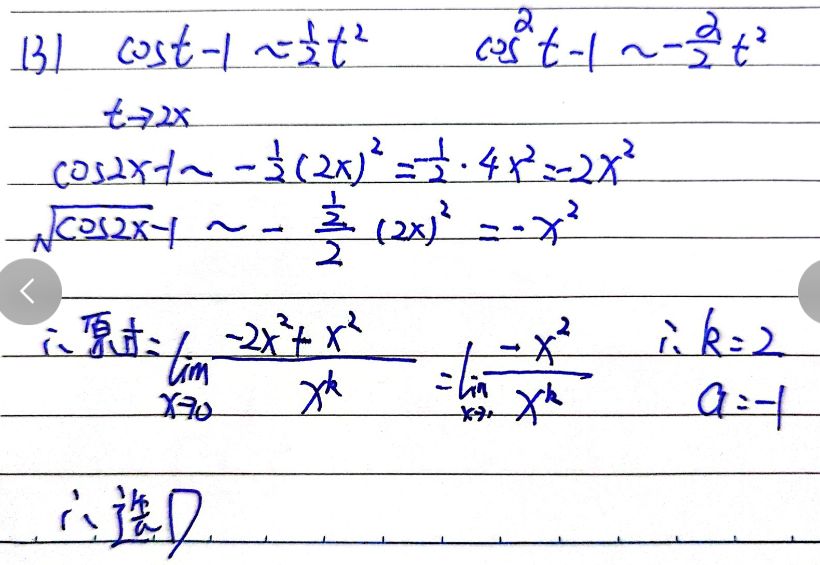 (3) cost-1 ~ -1/2 t² cos^a t-1 ~ -a/2 t²
t→2x
cos2x-1 ~ -1/2 (2x)² = -1/2 · 4x² = -2x²
√cos2x -1 ~ - (1/2)/2 (2x)² = -x²
∴ 原式 = lim x→0 (-2x² + x²)/x^k = lim x→0 (-x²)/x^k ∴ k=2
a=-1
∴ 选D